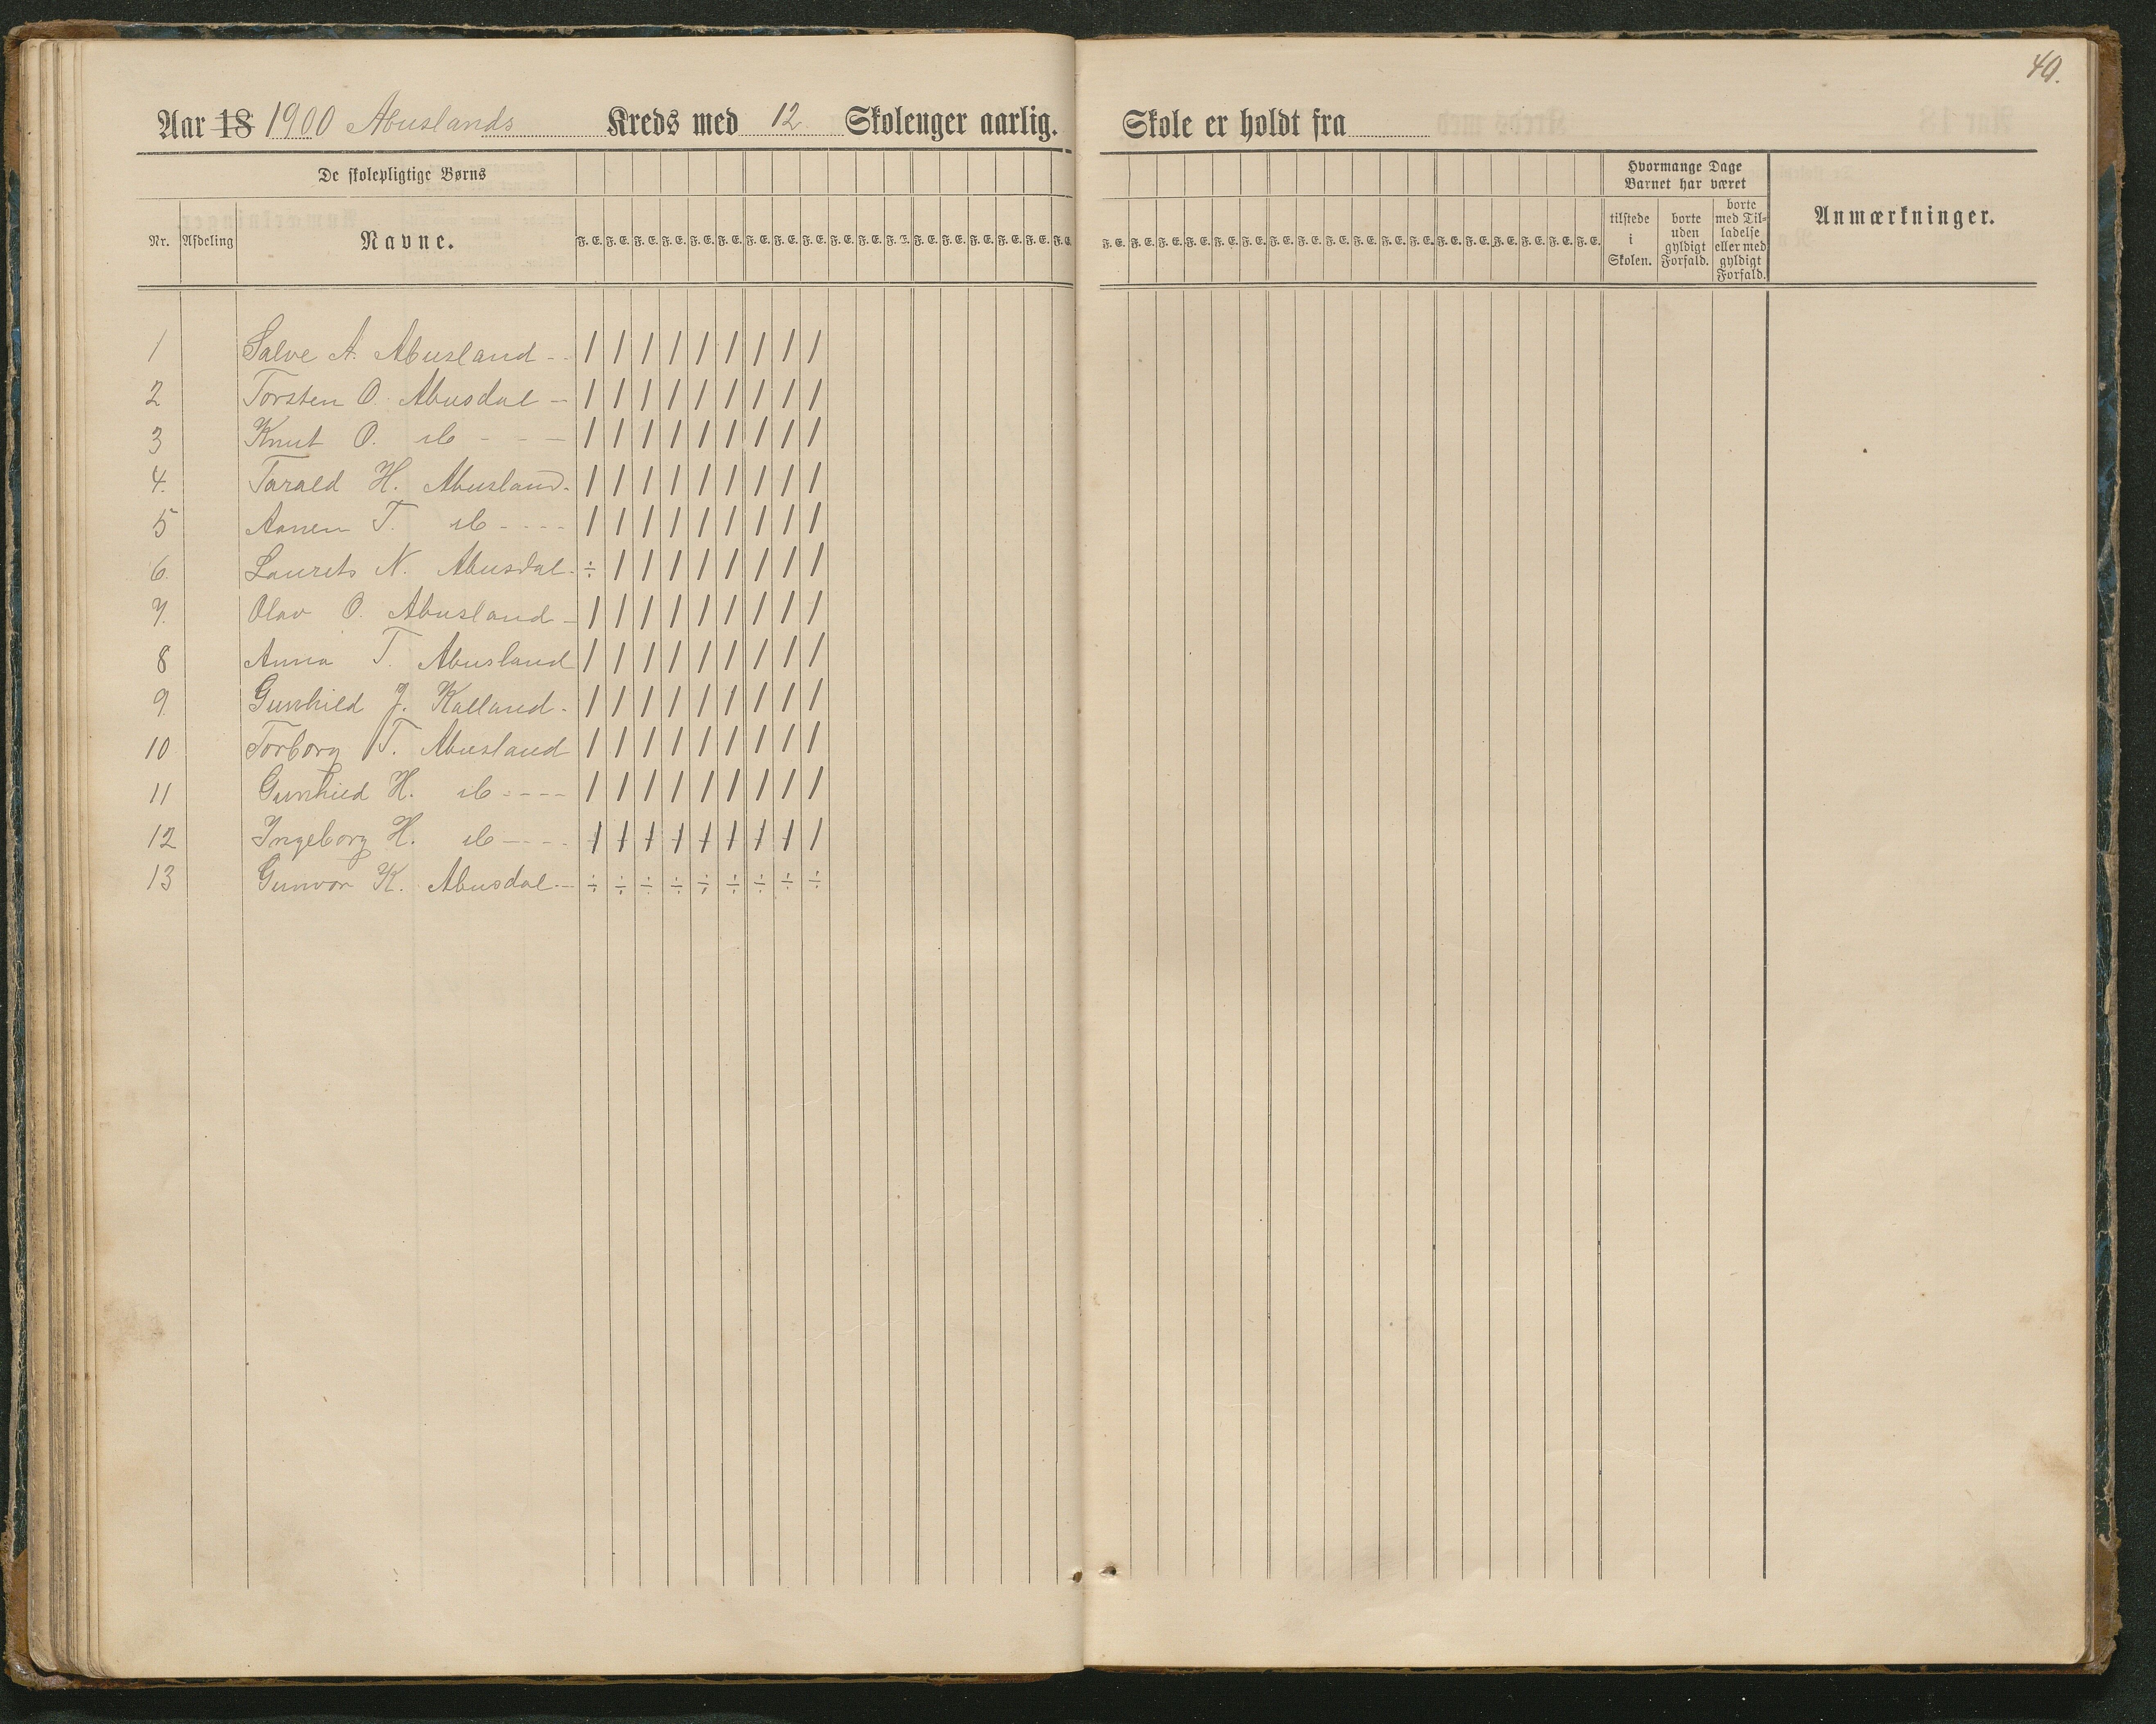 40.
Aar 18 1900 Abuslands Kreds med 12 Skolenger aarlig. Skole er holdt fra
De skolepligtige Børns
Hvormange Dage
Barnet har været
Nr. Afdeling Navne. F. E. F. E. F. E. F. E. F. E. F. E. F. E. F. E. F. E. F. E. F. E. F. E. F. E. F. E. F. E. F. E. F. E. F. E.
F. E. F. E. F. E. F. E. F. E. F. E. F. E. F. E. F. E. F. E. F. E. F. E. F. E. F. E. F. E. F. E. F. E. F. E.
tilstede
i
Skolen.
borte
uden
gyldigt
Forfald.
borte
med Til-
ladelse
eller med
gyldigt
Forfald.
Anmærkninger.
1 Salve A. Abusland - - / / / / / / / / /
2 Torsten O. Abusdal - / / / / / / / / /
3 Knut O. ib - - - / / / / / / / / /
4. Tarald H. Abusland. / / / / / / / / /
5 Aanen T. ib - - - - / / / / / / / / /
6. Laurits N. Abusdal - ÷ / / / / / / / /
7. Olav O. Abusland - / / / / / / / / /
8 Anna T. Abusland / / / / / / / / /
9. Gunhild J. Kalland - / / / / / / / / /
10 Torborg T. Abusland / / / / / / / / /
11 Gunhild H. ib - - - - / / / / / / / / /
12 Ingeborg H. ib - - - - / / / / / / / / /
13 Gunvor K. Abusdal - - ÷ ÷ ÷ ÷ ÷ ÷ ÷ ÷ ÷